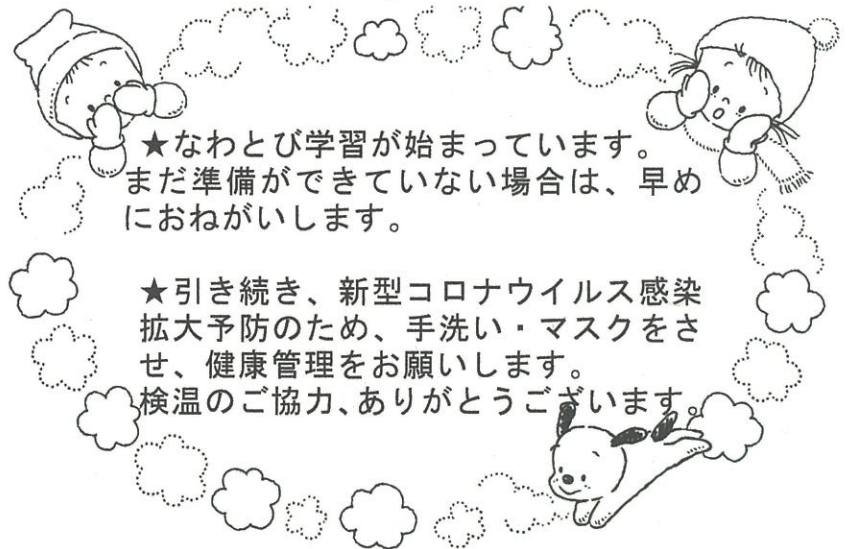 ★なわとび学習が始まっています。
まだ準備ができていない場合は、早め
におねがいします。
★引き続き、新型コロナウイルス感染
拡大予防のため、手洗い・マスクをさ
せ、健康管理をお願いします。
検温のご協力、ありがとうございます。